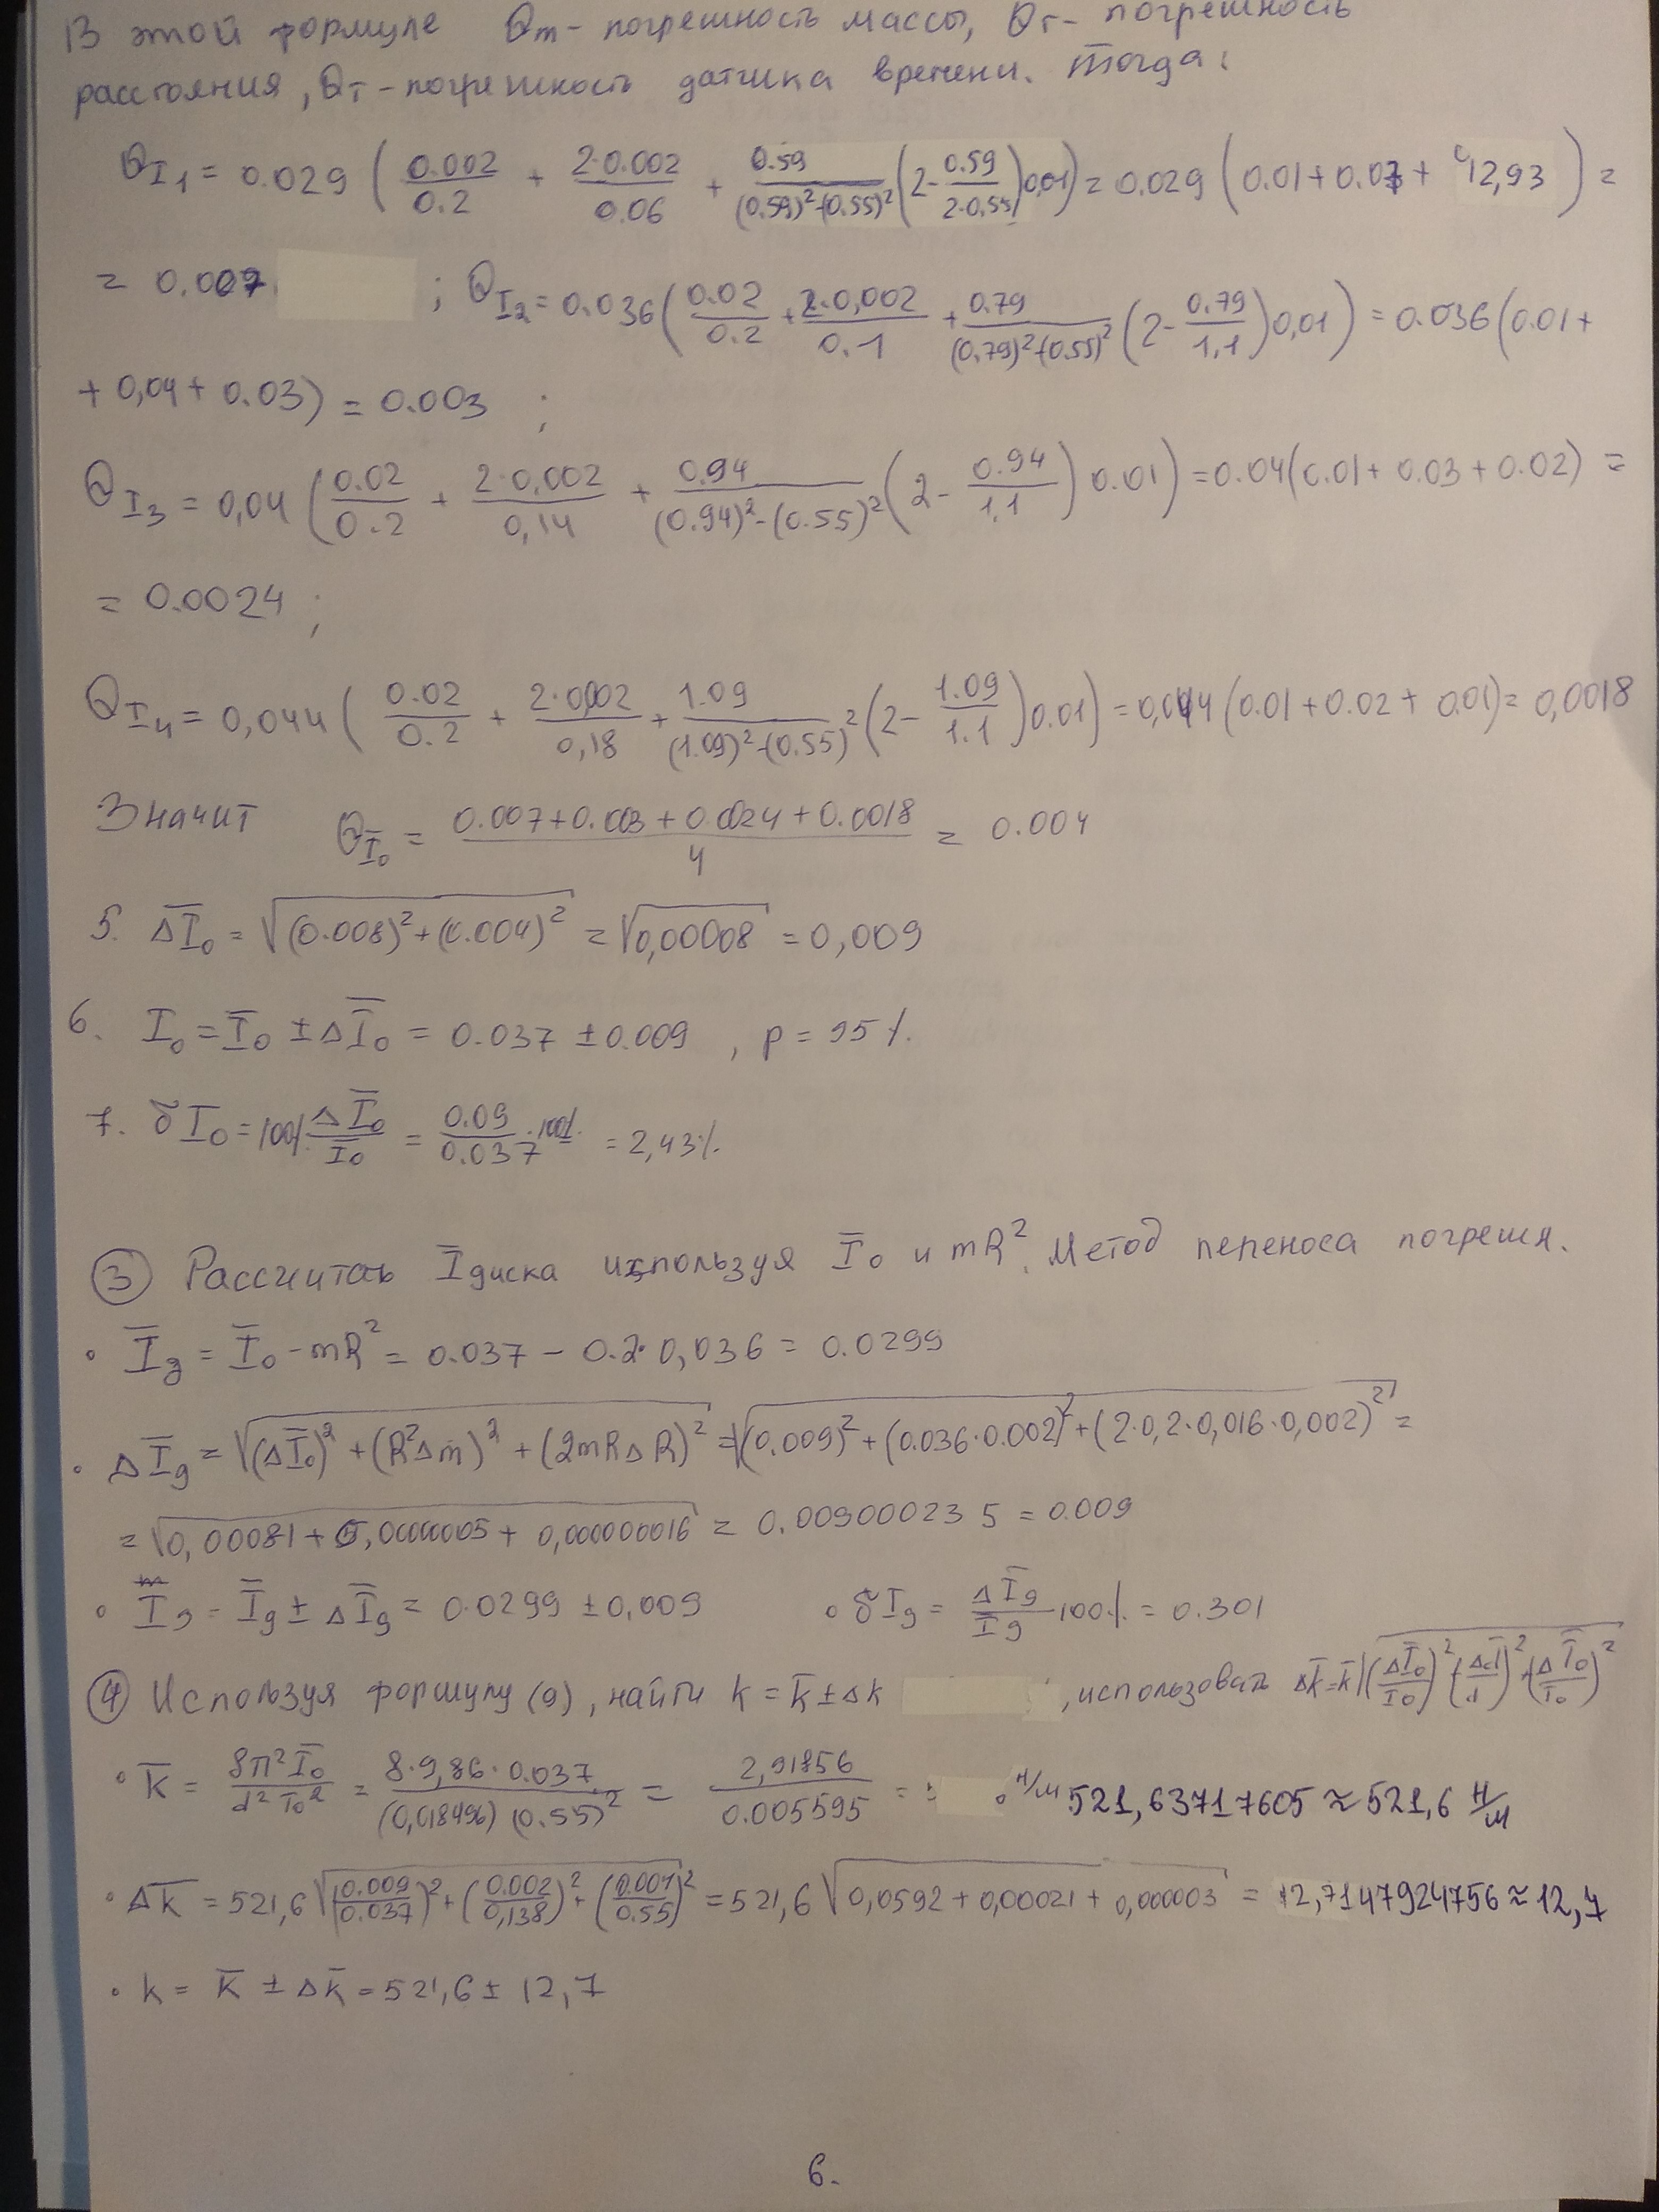 В этой формуле θm - погрешность массы, θr - погрешность
расстояния, θT - погрешность датчика времени. Тогда:
θI1 = 0.029 (0.002/0.2 + 2·0.002/0.06 + 0.59/((0.59)²-(0.55)²) (2 - 0.59/2·0,55) 0,01) = 0.029 (0.01 + 0.07 + 12,93) =
= 0.007 ; θI2 = 0.036 (0.02/0.2 + 2·0,002/0.1 + 0.79/((0,79)²-(0.55)²) (2 - 0.79/1,1) 0,01) = 0.036 (0.01 +
+ 0,04 + 0.03) = 0.003 ;
θI3 = 0,04 (0.02/0.2 + 2·0,002/0,14 + 0.94/((0.94)²-(0.55)²) (2 - 0.94/1,1) 0.01) = 0.04 (0.01 + 0.03 + 0.02) =
= 0.0024 ;
θI4 = 0,044 (0.02/0.2 + 2·0,002/0,18 + 1.09/((1.09)²-(0.55)²) (2 - 1.09/1.1) 0.01) = 0,044 (0.01 + 0.02 + 0.01) = 0,0018
Значит θĪ0 = (0.007 + 0.003 + 0.0024 + 0.0018)/4 = 0.004
5. ΔĪ0 = √((0.008)² + (0.004)²) = √0,00008 = 0,009
6. I0 = Ī0 ± ΔĪ0 = 0.037 ± 0.009 , p = 95%.
7. δI0 = 100% ΔĪ0/Ī0 = 0.09/0.037 · 100% = 2,43%
③ Рассчитать Īдиска используя Ī0 и mR². Метод переноса погрешн.
• Īд = Ī0 - mR² = 0.037 - 0.2·0,036 = 0.0299
• ΔĪд = √((ΔĪ0)² + (R²Δm)² + (2mRΔR)²) = √((0.009)² + (0.036·0.002)² + (2·0,2·0,016·0,002)²) =
= √(0,00081 + 0,0000005 + 0,000000016) = 0.009000023 5 = 0.009
• Iд = Īд ± ΔĪд = 0.0299 ± 0,009 • δIд = ΔĪд/Īд · 100% = 0.301
④ Используя формулу (9), найти k = k̄ ± Δk , использовать Δk̄ = k̄ √((ΔĪ0/Ī0)² + (Δd̄/d)² + (ΔT̄0/T0)²)
• k̄ = 8π²Ī0/d²T0² = 8·9,86·0.037/(0,018496)(0.55)² = 2,91856/0.005595 = Н/м 521,63717605 ≈ 521,6 Н/м
• Δk̄ = 521,6 √((0.009/0.037)² + (0.002/0,138)² + (0.001/0.55)²) = 521,6 √(0,0592 + 0,00021 + 0,000003) = 12,7147924756 ≈ 12,7
• k = k̄ ± Δk̄ = 521,6 ± 12,7
6.